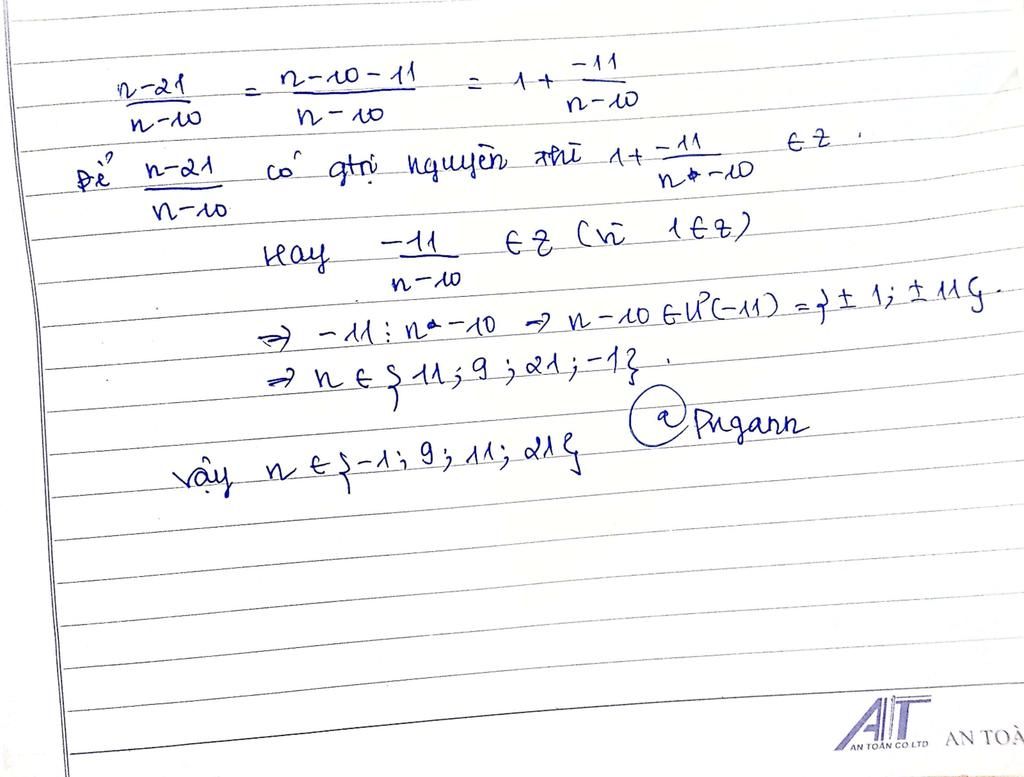 n-21/n-10 = n-10-11/n-10 = 1 + -11/n-10
Để n-21/n-10 có gtrị nguyên thì 1 + -11/n-10 ∈ Z.
Hay -11/n-10 ∈ Z (vì 1 ∈ Z)
⇒ -11 ⋮ n-10 → n-10 ∈ Ư(-11) = {±1; ±11}.
⇒ n ∈ {11; 9; 21; -1}.
@Pngann
Vậy n ∈ {-1; 9; 11; 21}
AT
AN TOÀN CO.LTD AN TOÀ